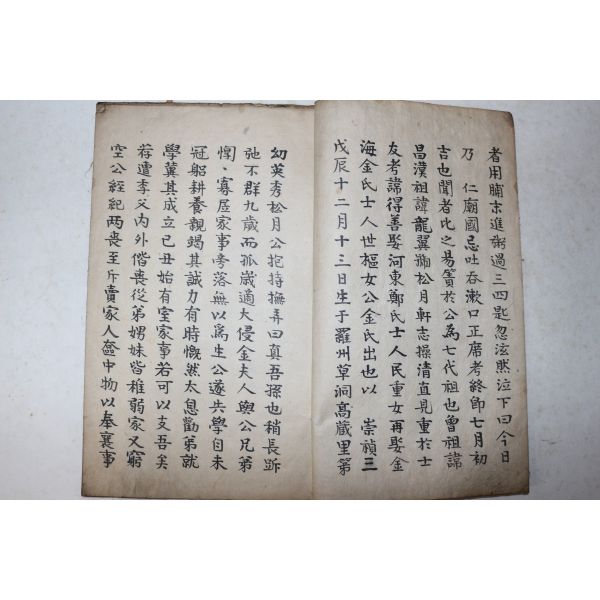 者用脯京進粥過三四匙忽泫然泣下曰今日
乃 仁廟國忌吐呑漱口正席考終卽七月初
吉也聞者比之易簀於公為七代祖也曾祖諱
昌漢祖諱龍翼號松月軒志操清直見重於士
友考諱得善娶河東鄭氏士人民重女再娶金
海金氏士人世樞女公金氏出也以 崇禎三
戊辰十二月十三日生于羅州草洞高蔵里第
幼英秀松月公抱持撫弄曰真吾孫也稍長跅
弛不群九歳而孤歳適大侵金夫人與公兄弟
惸〻寡居家事旁落無以為生公遂失學自未
冠躬耕養親竭其誠力有時慨然太息勸弟就
學冀其成立己丑始有室家事若可以支吾矣
荐遭季父内外偕喪從弟娚妹皆稚弱家又窮
空公經紀两喪至斥賣家人奩中物以奉襄事